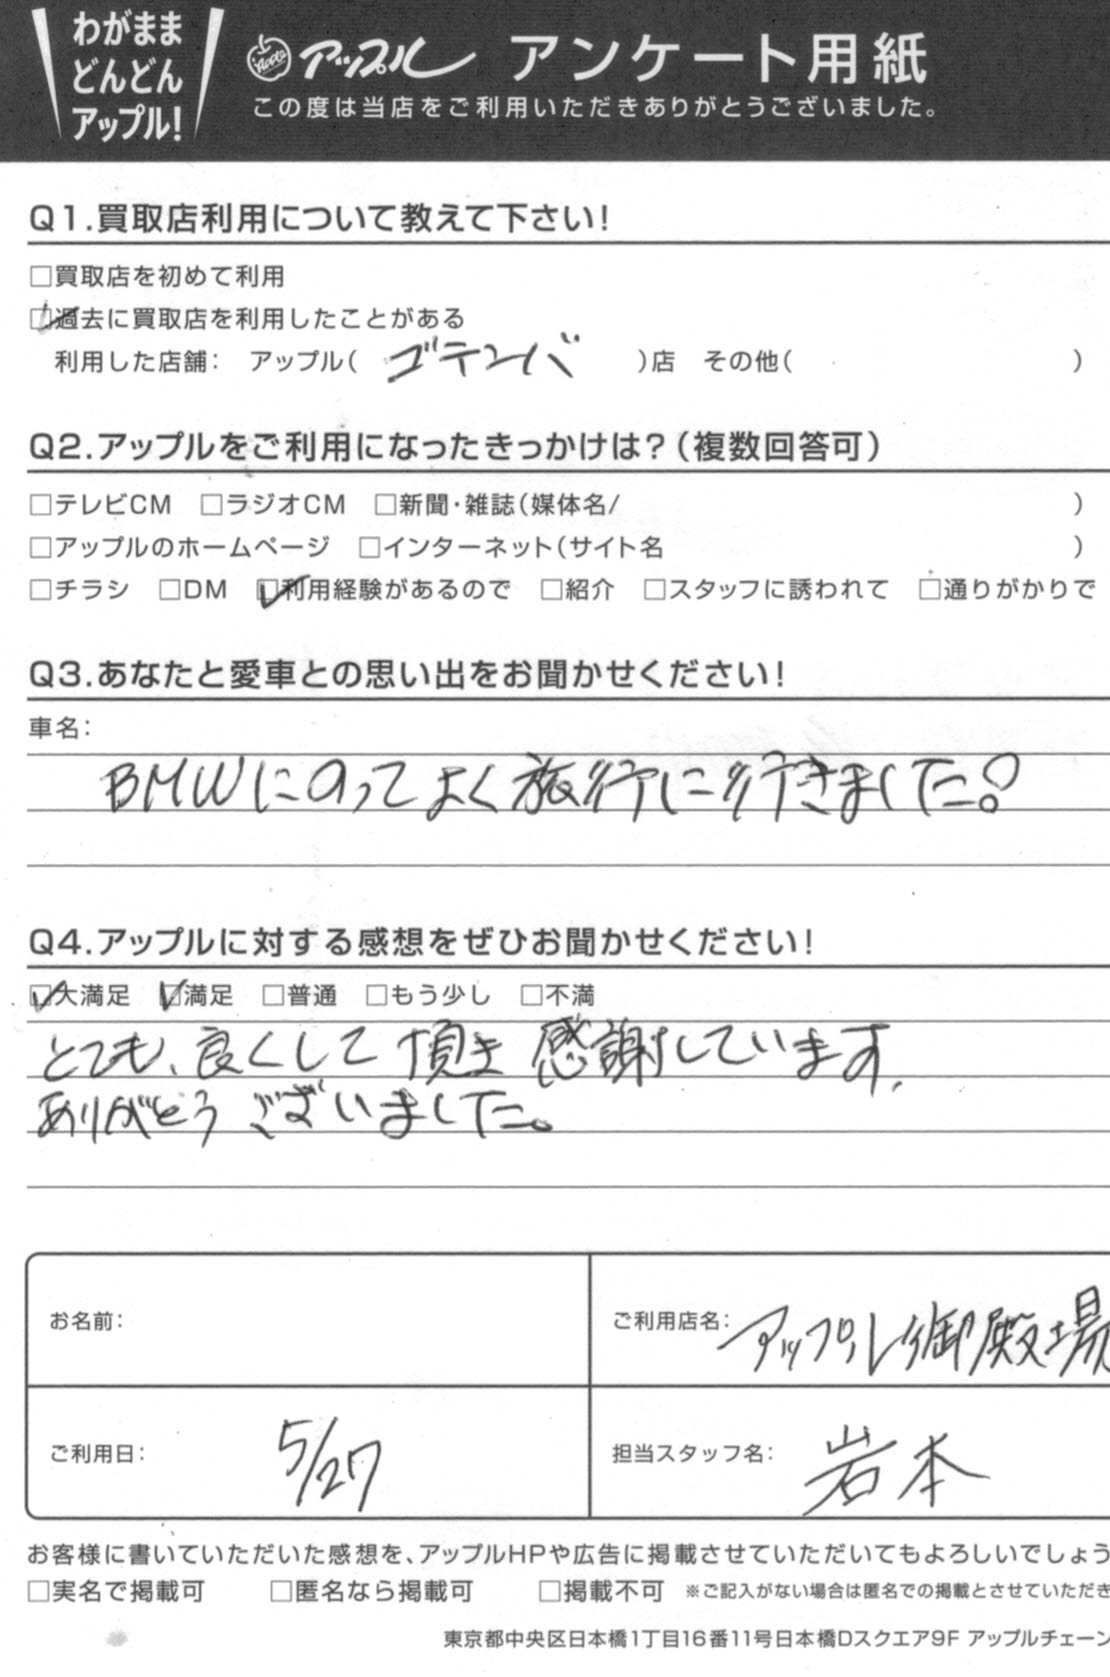 わがまま
どんどん
アップル!
Apple アップル アンケート用紙
この度は当店をご利用いただきありがとうございました。
Q1.買取店利用について教えて下さい!
□買取店を初めて利用
☑過去に買取店を利用したことがある
利用した店舗: アップル( ゴテンバ )店 その他( )
Q2.アップルをご利用になったきっかけは?(複数回答可)
□テレビCM □ラジオCM □新聞・雑誌(媒体名/ )
□アップルのホームページ □インターネット(サイト名 )
□チラシ □DM ☑利用経験があるので □紹介 □スタッフに誘われて □通りがかりで
Q3.あなたと愛車との思い出をお聞かせください!
車名:
BMWにのってよく旅行に行きました。
Q4.アップルに対する感想をぜひお聞かせください!
☑大満足 ☑満足 □普通 □もう少し □不満
とても、良くして頂き感謝しています、
ありがとうございました。
お名前:
ご利用店名: アップル御殿場
ご利用日: 5/27
担当スタッフ名: 岩本
お客様に書いていただいた感想を、アップルHPや広告に掲載させていただいてもよろしいでしょう
□実名で掲載可 □匿名なら掲載可 □掲載不可 ※ご記入がない場合は匿名での掲載とさせていただき
東京都中央区日本橋1丁目16番11号日本橋Dスクエア9F アップルチェーン